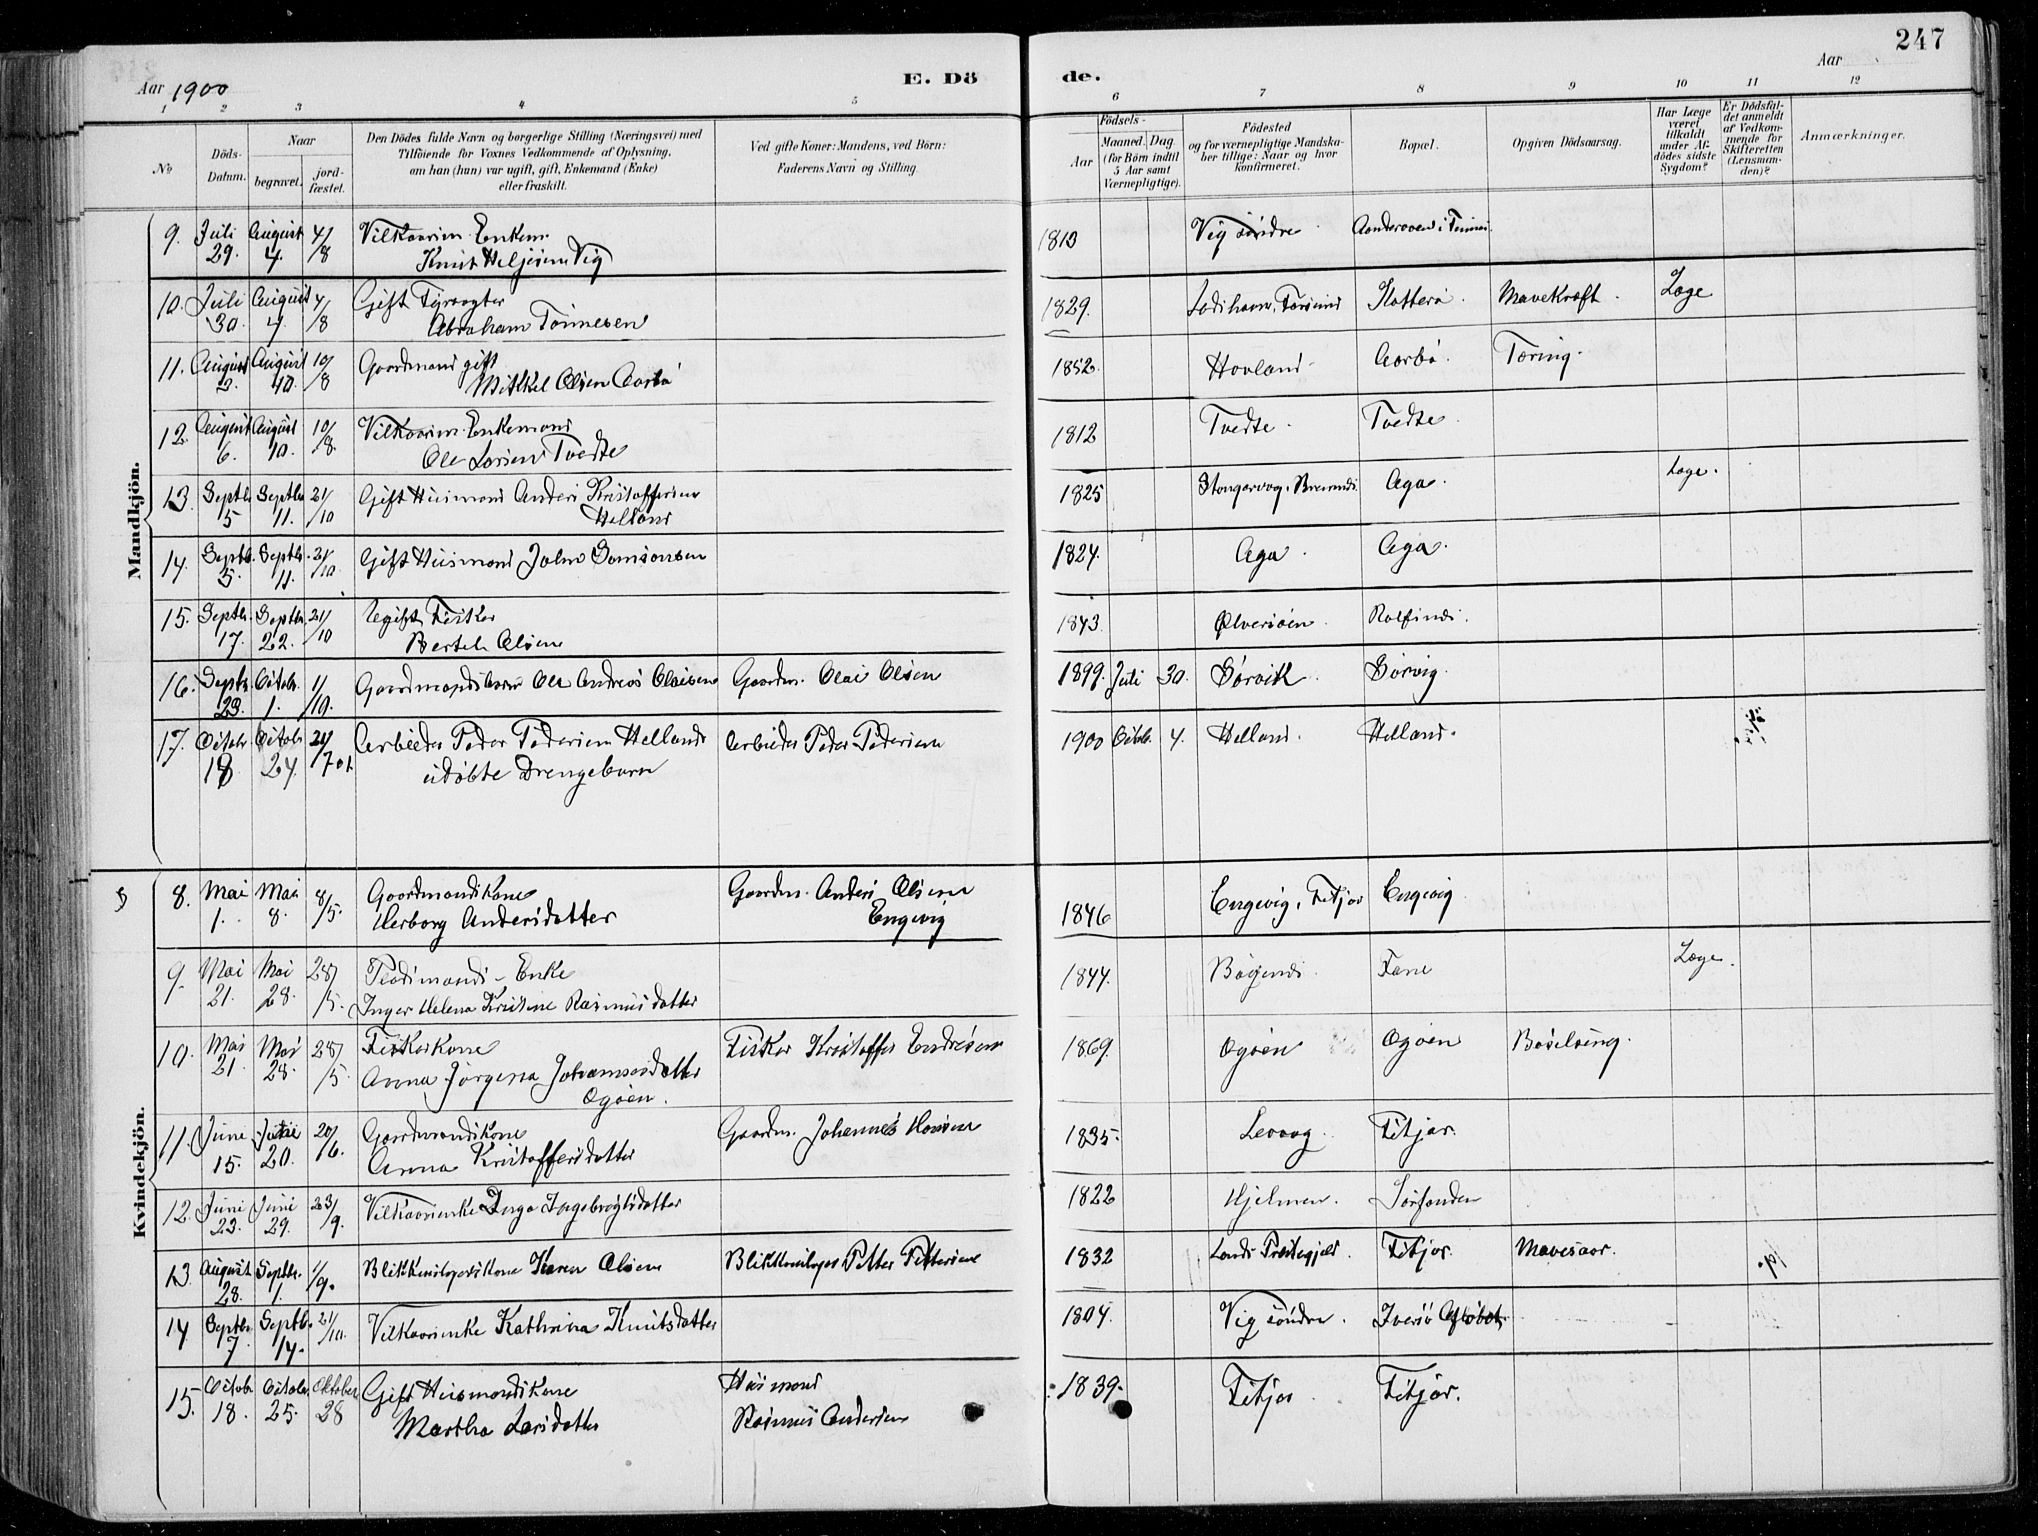 247
Aar 1900
E. Dö
de.
Aar
1 2 3 4 5 6 7 8 9 10 11 12
No
Döds-Datum.
Naar
begravet.
jordfæstet.
Den Dödes fulde Navn og borgerlige Stilling (Næringsvei) med
Tilföiende for Voxnes Vedkommende af Oplysning,
om han (hun) var ugift, gift, Enkemand (Enke)
eller fraskilt.
Ved gifte Koner: Mandens, ved Börn:
Faderens Navn og Stilling.
Födsels-
Aar
Maaned. Dag
(for Börn indtil
5 Aar samt
Værnepligtige).
Födested
og for værnepligtige Mandskaber tillige: Naar og hvor
Konfirmeret.
Bopæl.
Opgiven Dödsaarsag.
Har Læge
været
tilkaldt
under Afdödes sidste
Sygdom?
Er Dödsfaldet anmeldt
af Vedkommende for
Skifteretten
(Lensmanden)?
Anmærkninger.
Mandkjön.
9. Juli 29. August 4. 4/8 Vilkaarsm. Enkem.
Knut Heljesen Vig
1813 Vig söndre
10. Juli 30. August 4. 4/8 Gift Fyrvogter
Abraham Tönnesen
1829. Flatterö. Mavekræft. Læge
11. August 2. August 10. 10/8 Gaardmand gift
Mikkel Olsen Aarbö
1852. Hovland Aarbö. Tæring.
12. August 6. August 10. 10/8 Vilkaarsm. Enkemand
Ole Larsen Tvedte
1812 Tvedte. Tvedte.
13. Septbr 5 Septbr 11. 21/10 Gift Husmand Anders Kristoffersen
Helland
1825 Aga. Læge.
14. Septbr. 5. Septbr. 11. 21/10 Gift Husmand John Samsonsen
1824. Aga. Aga.
15. Septbr. 17. Septbr. 22. 21/10 Ugift Fisker
Bertel Olsen
1843. Ølversöen. Rolfsnæs.
16. Septbr. 23. Octobr. 1. 1/10. Gaardmandsbarn Ole Andreas Olaisen Gaardm. Olai Olsen
1899. Juli 30. Sörvik. Sörvig.
17. Octobr 18 Octobr 24. 24/7 01. Arbeider Peder Pedersen Hellands
udöbte Drengebarn
Arbeider Peder Pedersen
1900 Octobr. 4. Helland. Helland.
Kvindekjön.
8. Mai 1. Mai 8. 8/5. Gaardmandskone
Herborg Andersdatter
Gaardm. Anders Olsen
Engevig
1846 Engevig, Fitjar Engevig
9. Mai 21. Mai 28. 28/5. Pladsmands-Enke
Inger Helena Kristine Rasmusdatter
1844. Læge.
10. Mai 21. Mai 28. 28/5. Fiskerkone
Anna Jörgena Johannesdatter
Ögöen.
Fisker Kristoffer Endresen
1869. Ögöen Ögöen Barselseng.
11. Juni 15. Juni 20. 20/6. Gaardmandskone
Anna Kristoffersdatter
Gaardm. Johannes Hansen
1835. Levaag. Fitjar.
12. Juni 23. Juni 29. 23/9. Vilkaarsenke Inga Ingebregtsdatter
1822 Hjelmen. Sörfonden
13 August 28. Septbr. 1. 1/9. Blikkenslagerskone Karen Olsen
Blikkenslager Petter Pettersen
1832 Lands Præstegjeld. Fitjar. Mavesaar.
14 Septbr. 7 Septbr. 14. 21/10. Vilkaarsenke Kathrina Knutsdatter
1804. Vig söndre.
15. Octobr. 18. Octobr. 25. Oktober 28 Gift Husmandskone
Martha Larsdatter
Husmand
Rasmus Andersen
1839. Fitjar Fitjar.